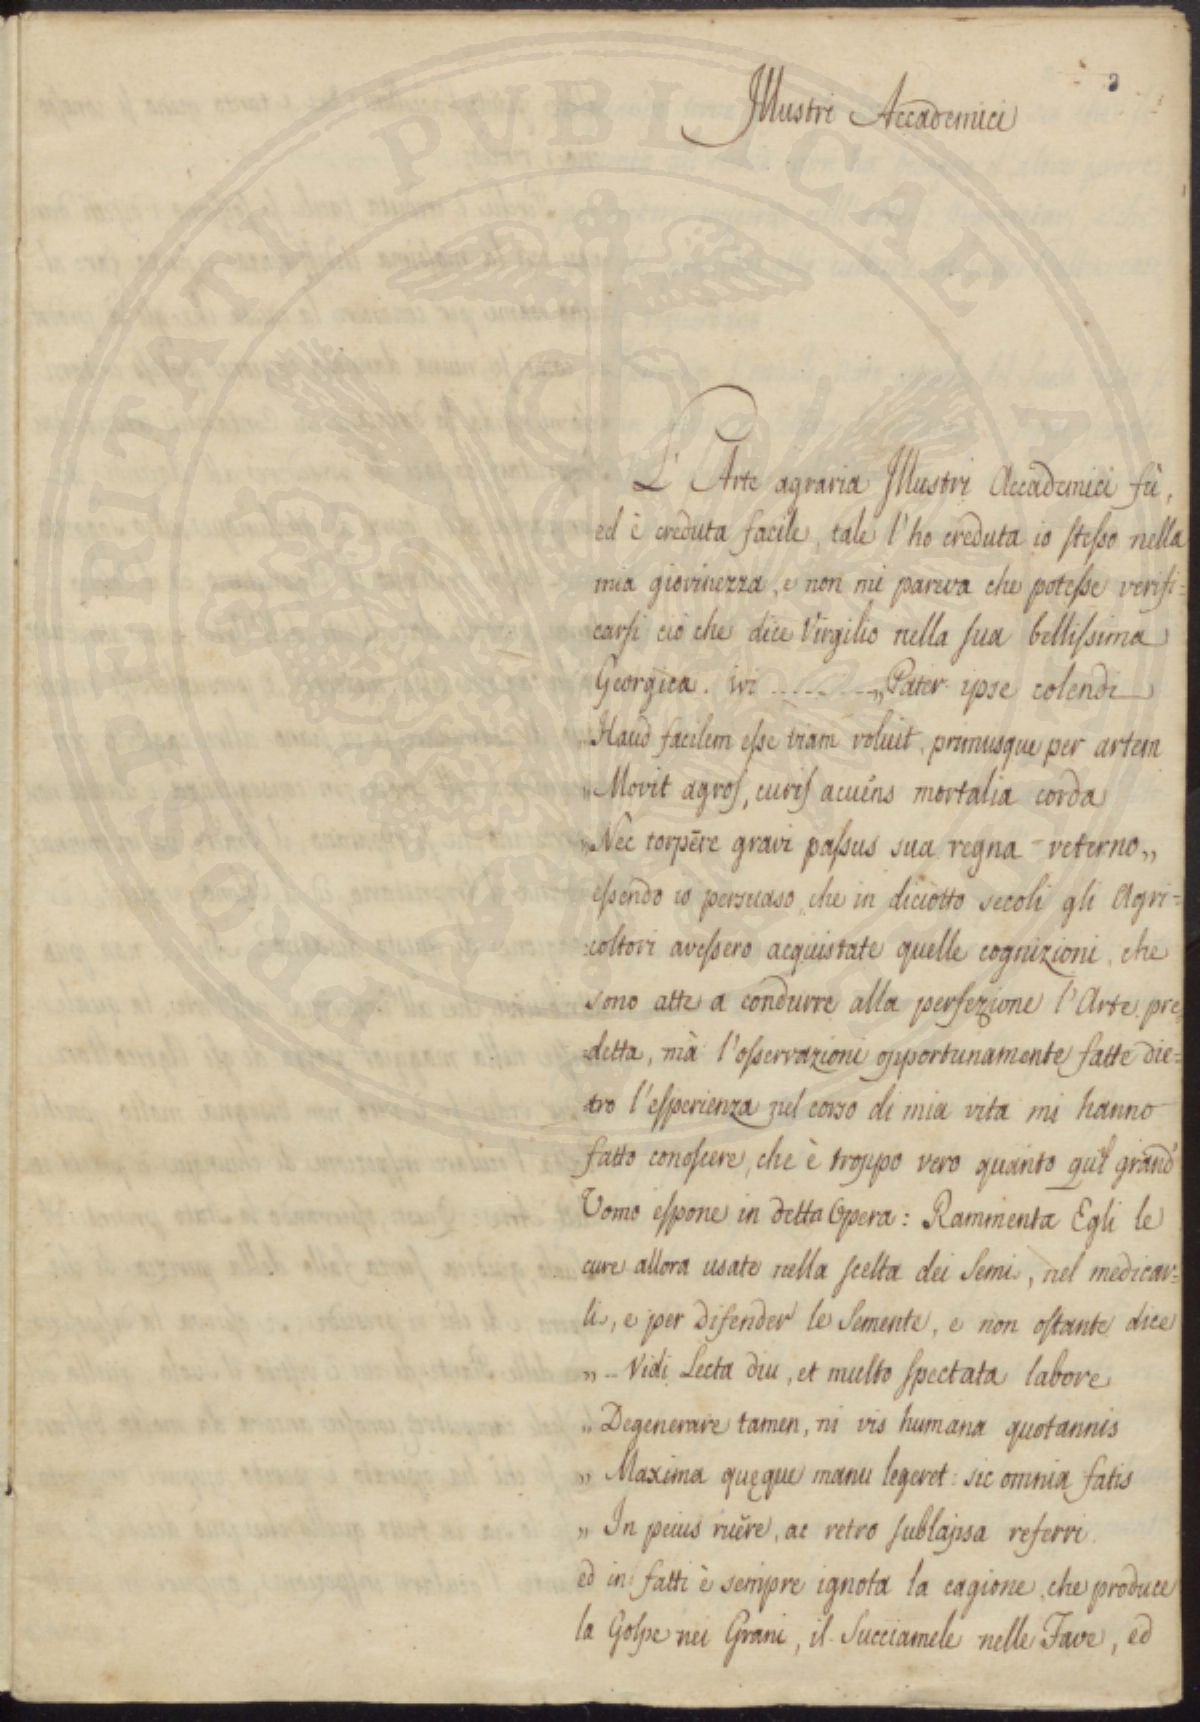 3
Illustri Accademici
L'Arte agraria Illustri Accademici fù,
ed è creduta facile, tale l'ho creduta io stesso nella
mia giovinezza, e non mi pareva che potesse verifi=
carsi ciò che dice Virgilio nella sua bellissima
Georgica. ivi ........ „Pater ipse colendi
„Haud facilem esse viam voluit, primusque per artem
„Movit agros, curis acuens mortalia corda
„Nec torpēre gravi passus sua regna veterno„
essendo io persuaso, che in diciotto secoli gli Agri=
=coltori avessero acquistate quelle cognizioni, che
sono atte a condurre alla perfezione l'Arte pre=
=detta, mà l'osservazioni opportunamente fatte die=
tro l'esperienza nel corso di mia vita mi hanno
fatto conoscere, che è troppo vero quanto quel grand'
Uomo espone in detta Opera: Rammenta Egli le
cure allora usate nella scelta dei Semi, nel medicar=
li, e per difender le Semente, e non ostante dice
„.. Vidi Lecta diu, et multo spectata labore
„ Degenerare tamen, ni vis humana quotannis
„ Maxima quęque manu legeret: sic omnia fatis
„ In peius ruĕre, ac retro sublapsa referri.
ed in fatti è sempre ignota la cagione, che produce
la Golpe nei Grani, il Succiamele nelle Fave, ed
PUBLICAE